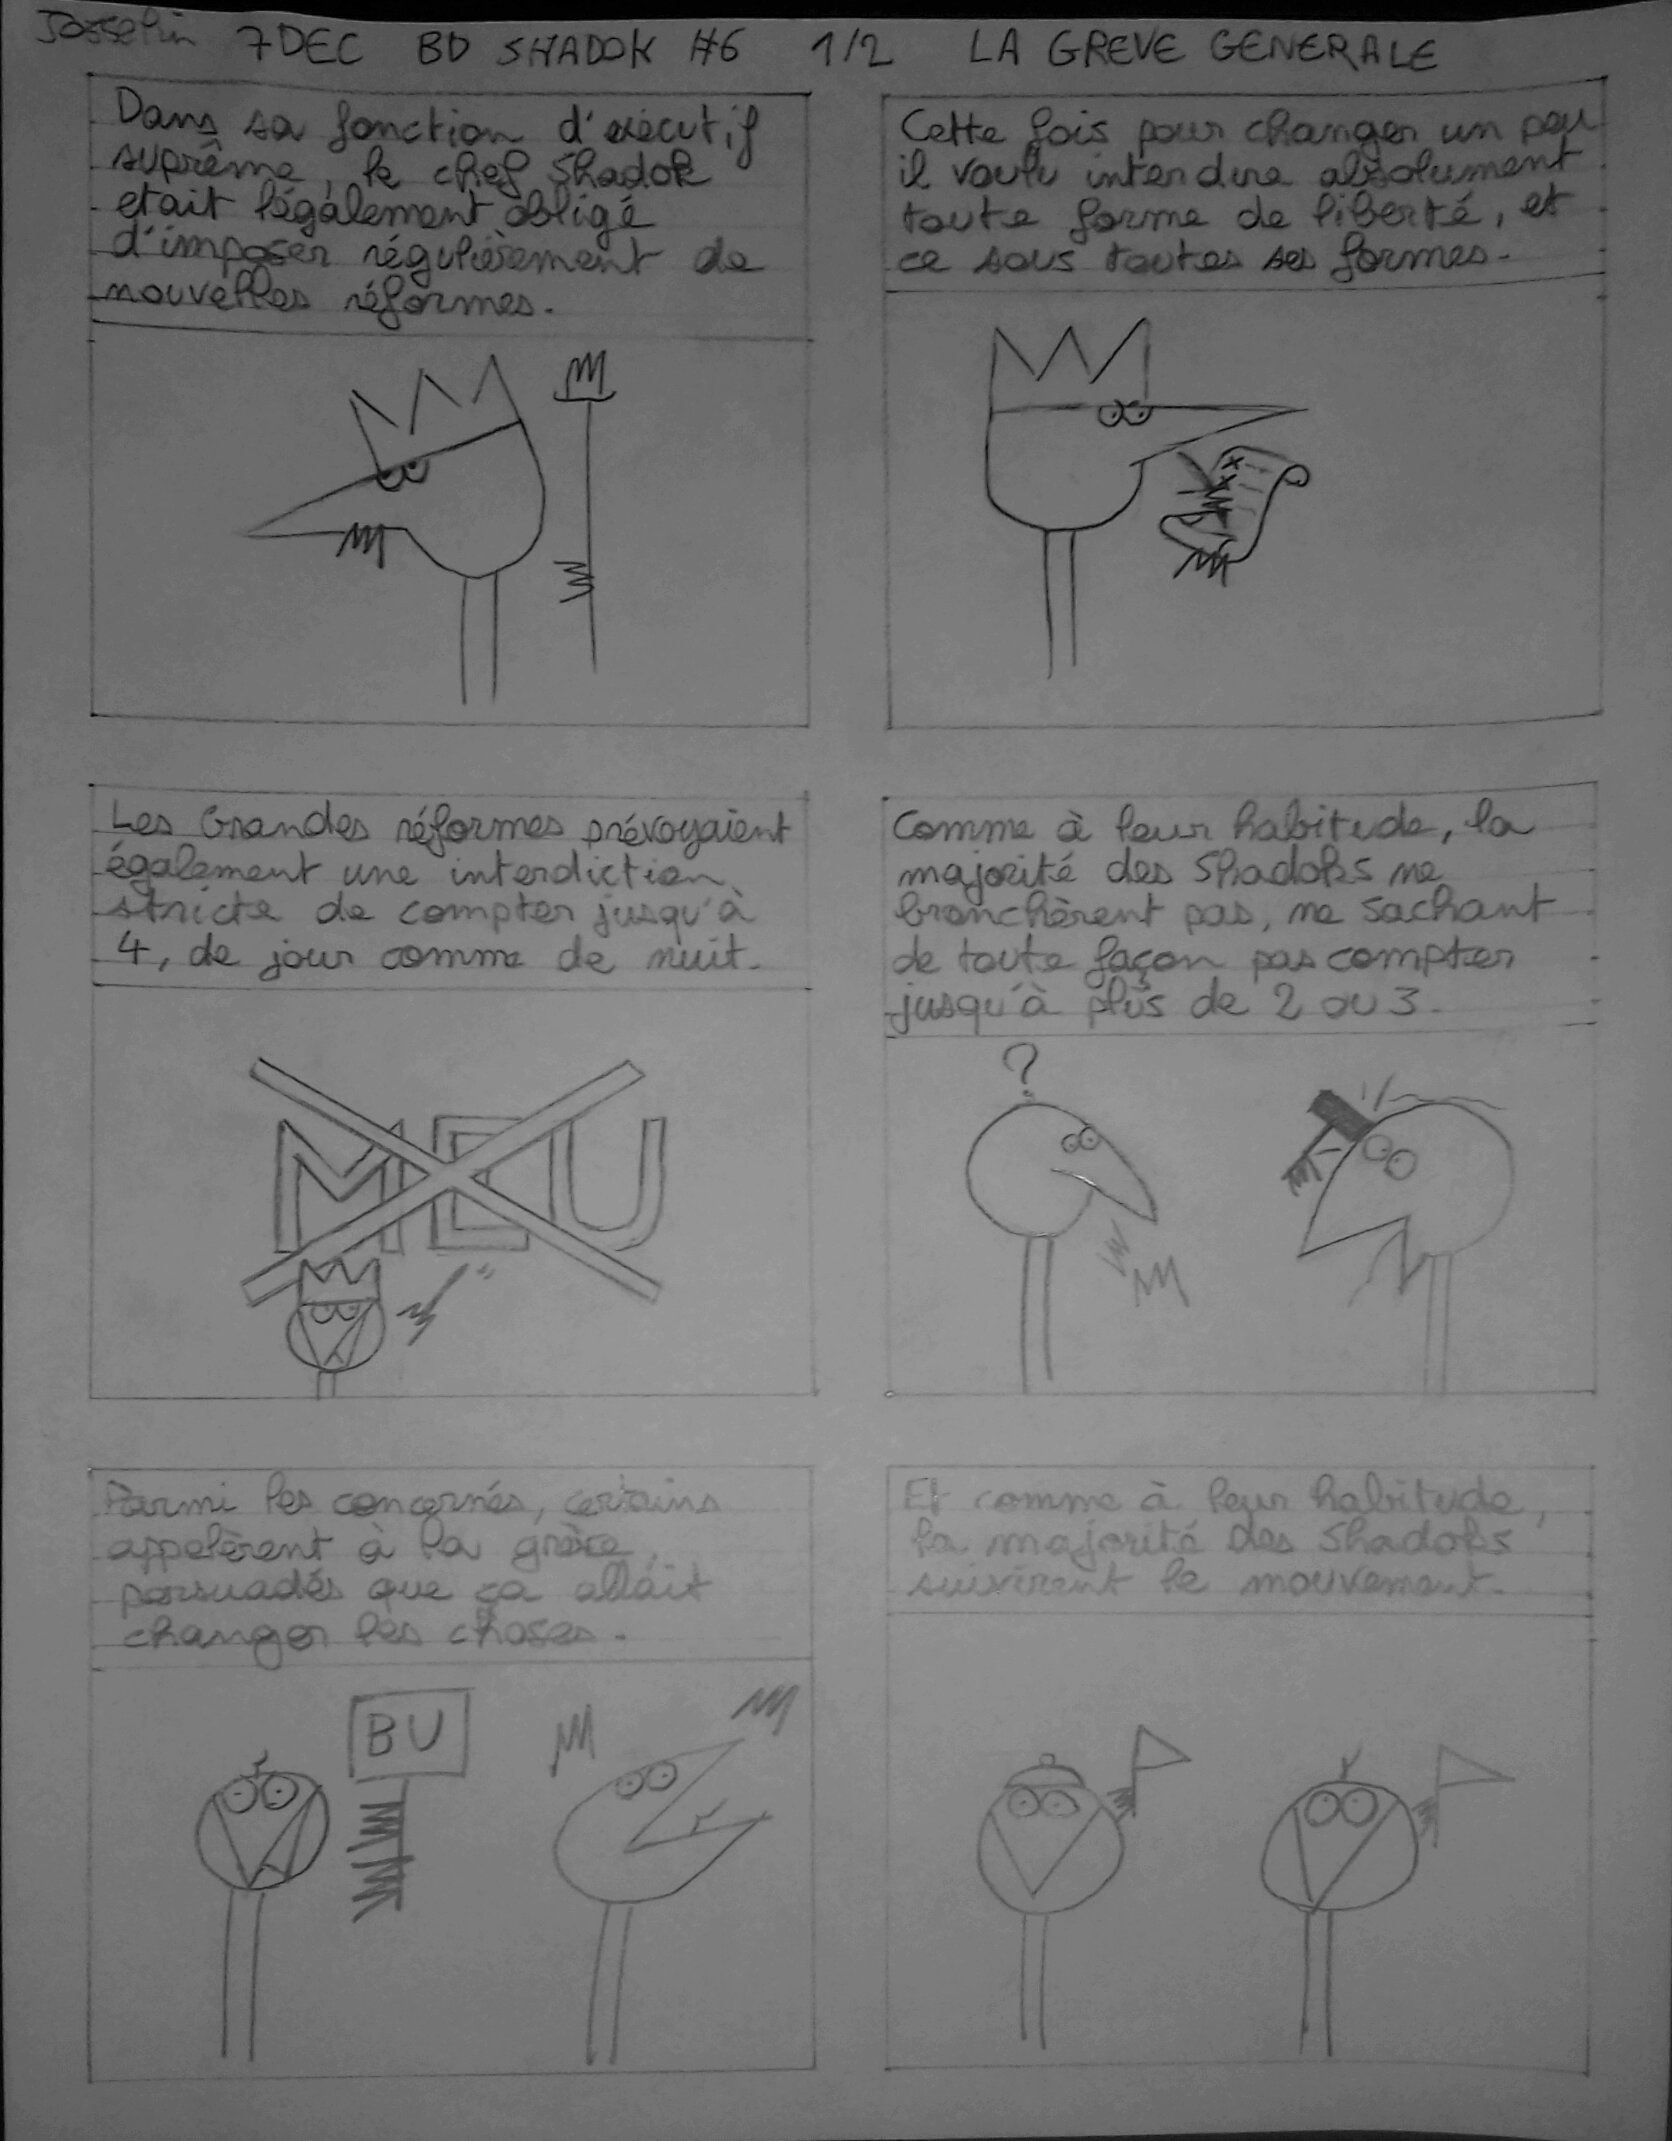 Josselin 7DEC BD SHADOK #6 1/2 LA GREVE GENERALE
Dans sa fonction d'exécutif
suprême, le chef Shadok
etait légalement obligé
d'imposer régulièrement de
nouvelles réformes.
Cette fois pour changer un peu
il voulu interdire absolument
toute forme de liberté, et
ce sous toutes ses formes.
Les Grandes réformes prévoyaient
également une interdiction
stricte de compter jusqu'à
4, de jour comme de nuit.
MEU
Comme à leur habitude, la
majorité des Shadoks ne
bronchèrent pas, ne sachant
de toute façon pas compter
jusqu'à plus de 2 ou 3.
?
Parmi les concernés, certains
appelèrent à la grève,
persuadés que ça allait
changer les choses.
BU
Et comme à leur habitude,
la majorité des Shadoks
suivirent le mouvement.